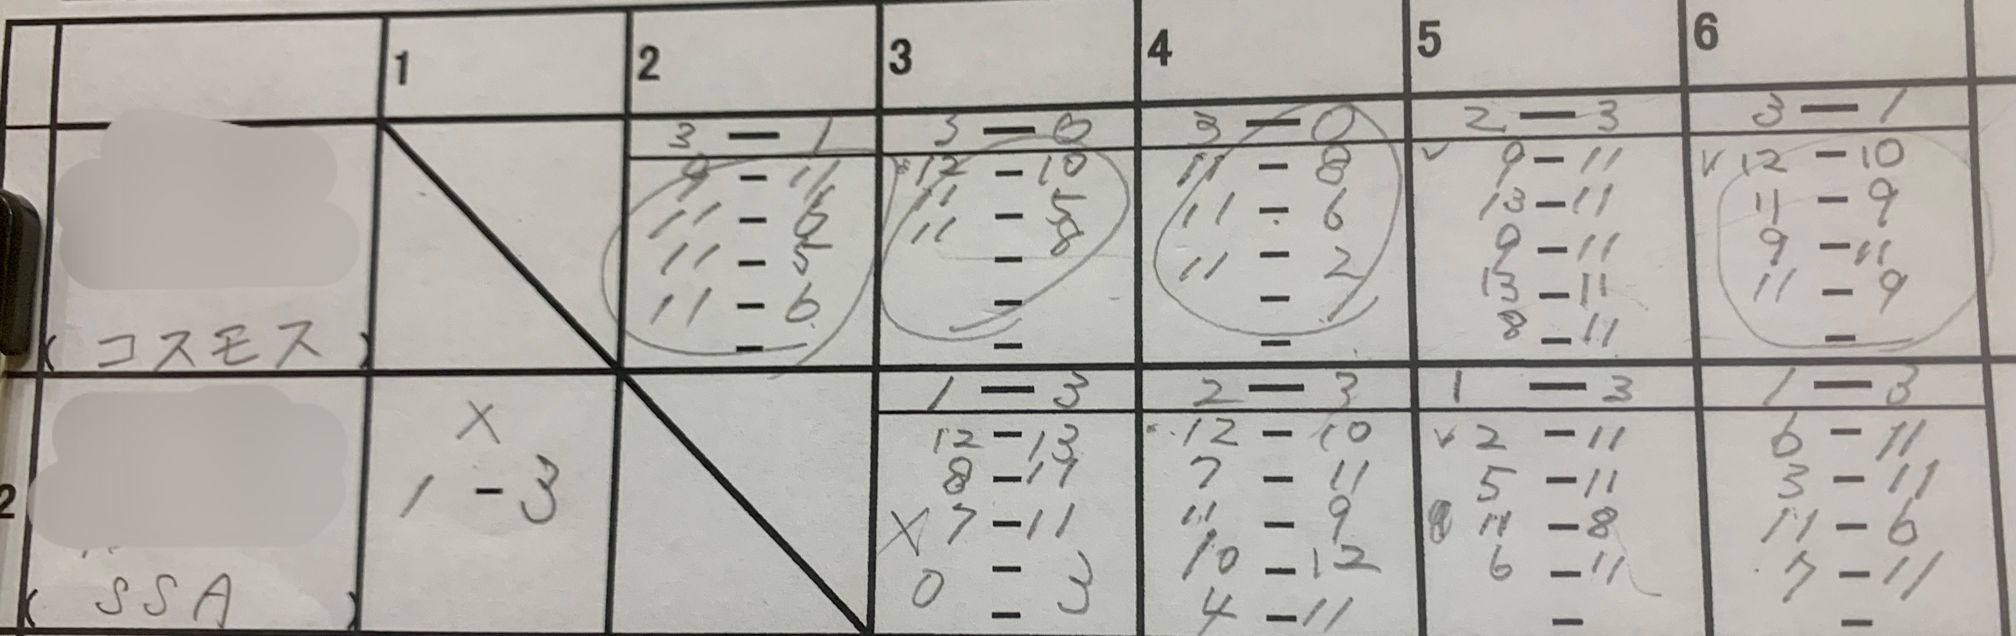 1 2 3 4 5 6
3 — 1
9 - 11
11 - 6
11 - 5
11 - 6
-
3 — 0
12 - 10
11 - 5
11 - 8
-
-
3 — 0
11 - 8
11 - 6
11 - 2
-
-
2 — 3
9 - 11
13 - 11
9 - 11
13 - 11
8 - 11
3 — 1
12 - 10
11 - 9
9 - 11
11 - 9
-
( コスモス )
2
( SSA )
×
1 - 3
1 — 3
12 - 13
8 - 11
× 7 - 11
0 - 3
-
2 — 3
12 - 10
7 - 11
11 - 9
10 - 12
4 - 11
1 — 3
2 - 11
5 - 11
11 - 8
6 - 11
-
1 — 3
6 - 11
3 - 11
11 - 6
7 - 11
-